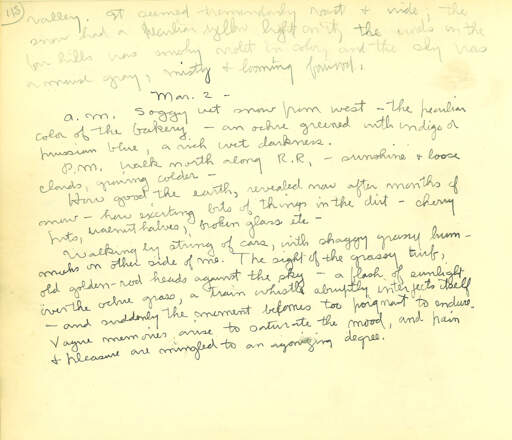 113
valley. It seemed tremendously vast & wide; the
snow had a peculiar yellow light on it, the woods on the
far hills was smoky violet in color, and the sky was
a mouse gray, misty & looming forward.
Mar. 2 -
a.m. Soggy wet snow from west - the peculiar
color of the bakery - an ochre greened with indigo or
prussian blue, a rich wet darkness.
P.M. walk north along R.R., - sunshine & loose
clouds, growing colder -
How good the earth, revealed now after months of
snow - how exciting bits of things in the dirt - cherry
pits, walnut halves, broken glass etc -
Walking by string of cars, with shaggy grassy hum-
mocks on other side of me. The sight of the grassy turf,
old golden-rod heads against the sky - a flash of sunlight
over the ochre grass, a train whistle abruptly interjects itself
- and suddenly the moment becomes too poignant to endure.
Vague memories arise to saturate the mood, and pain
& pleasure are mingled to an agonizing degree.